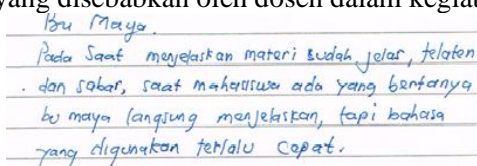 yang disebabkan oleh dosen dalam kegiat
Bu Maya.
Pada Saat menjelaskan materi sudah jelas, telaten
dan sabar, saat mahasiswa ada yang bertanya
bu maya langsung menjelaskan, tapi bahasa
yang digunakan terlalu cepat.